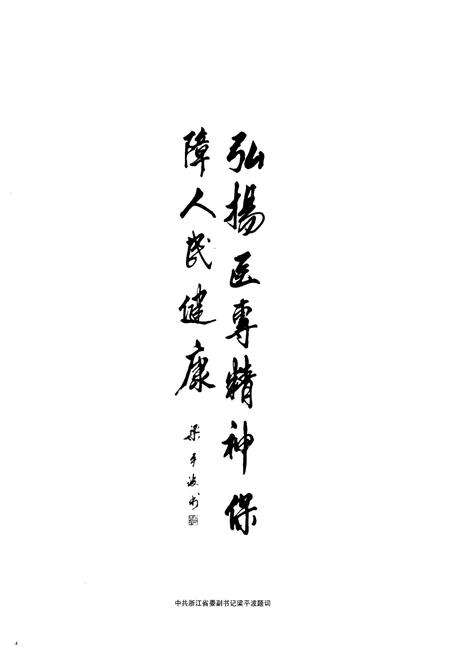 弘揚医專精神保
障人民健康
梁平波书
中共浙江省委副书记梁平波题词